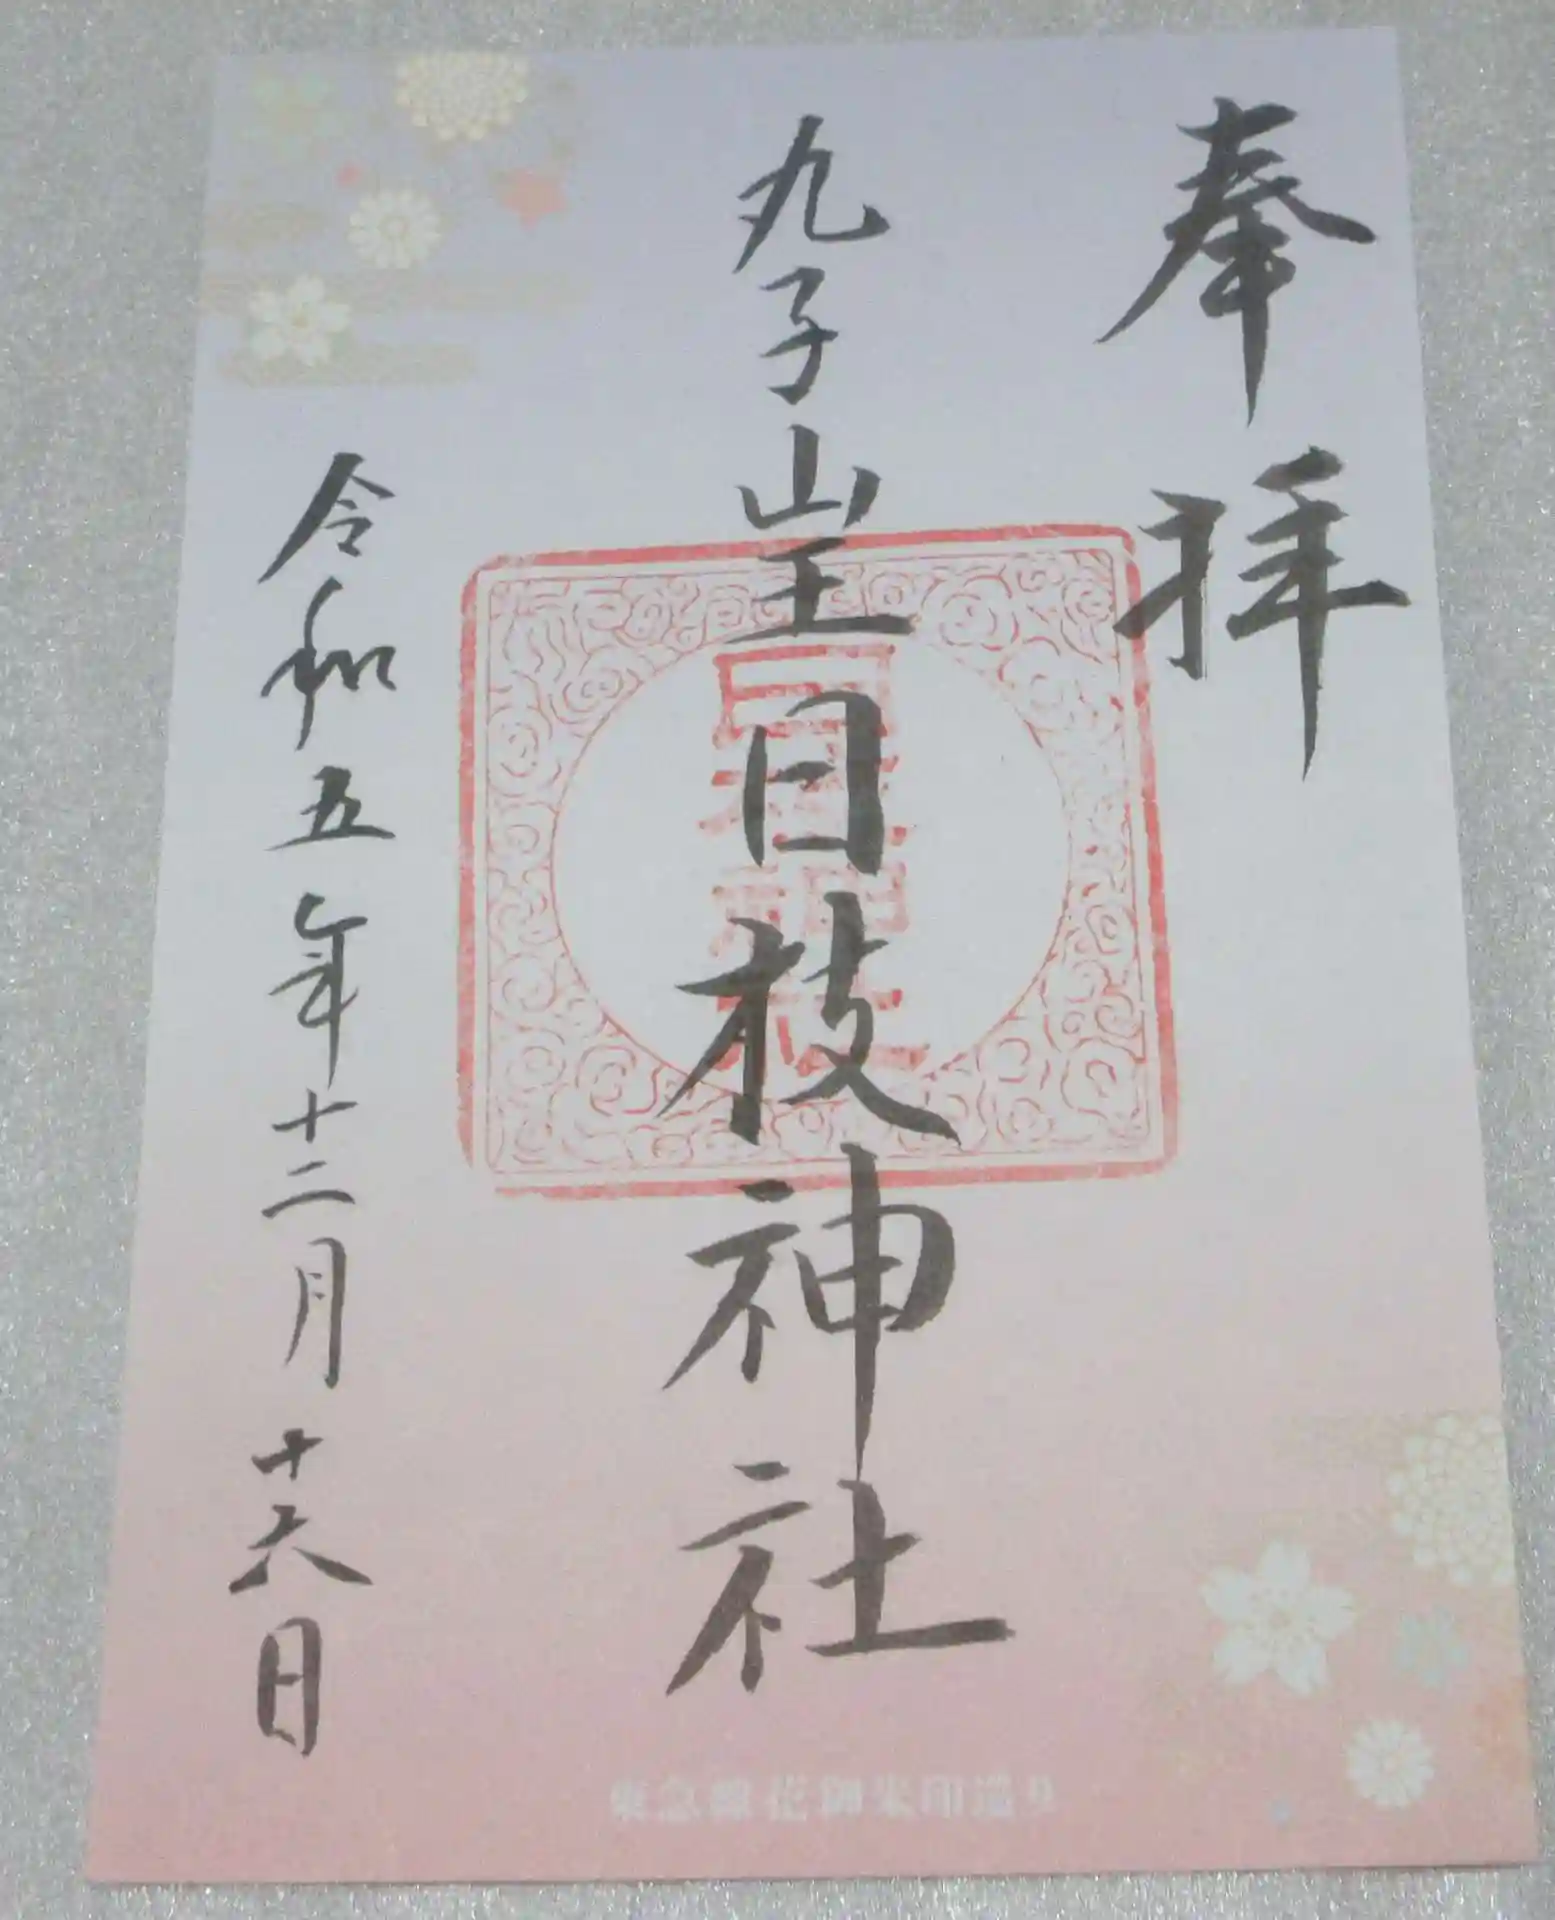 奉拝
丸子山王日枝神社
令和五年十二月十六日
東急線花御朱印巡り